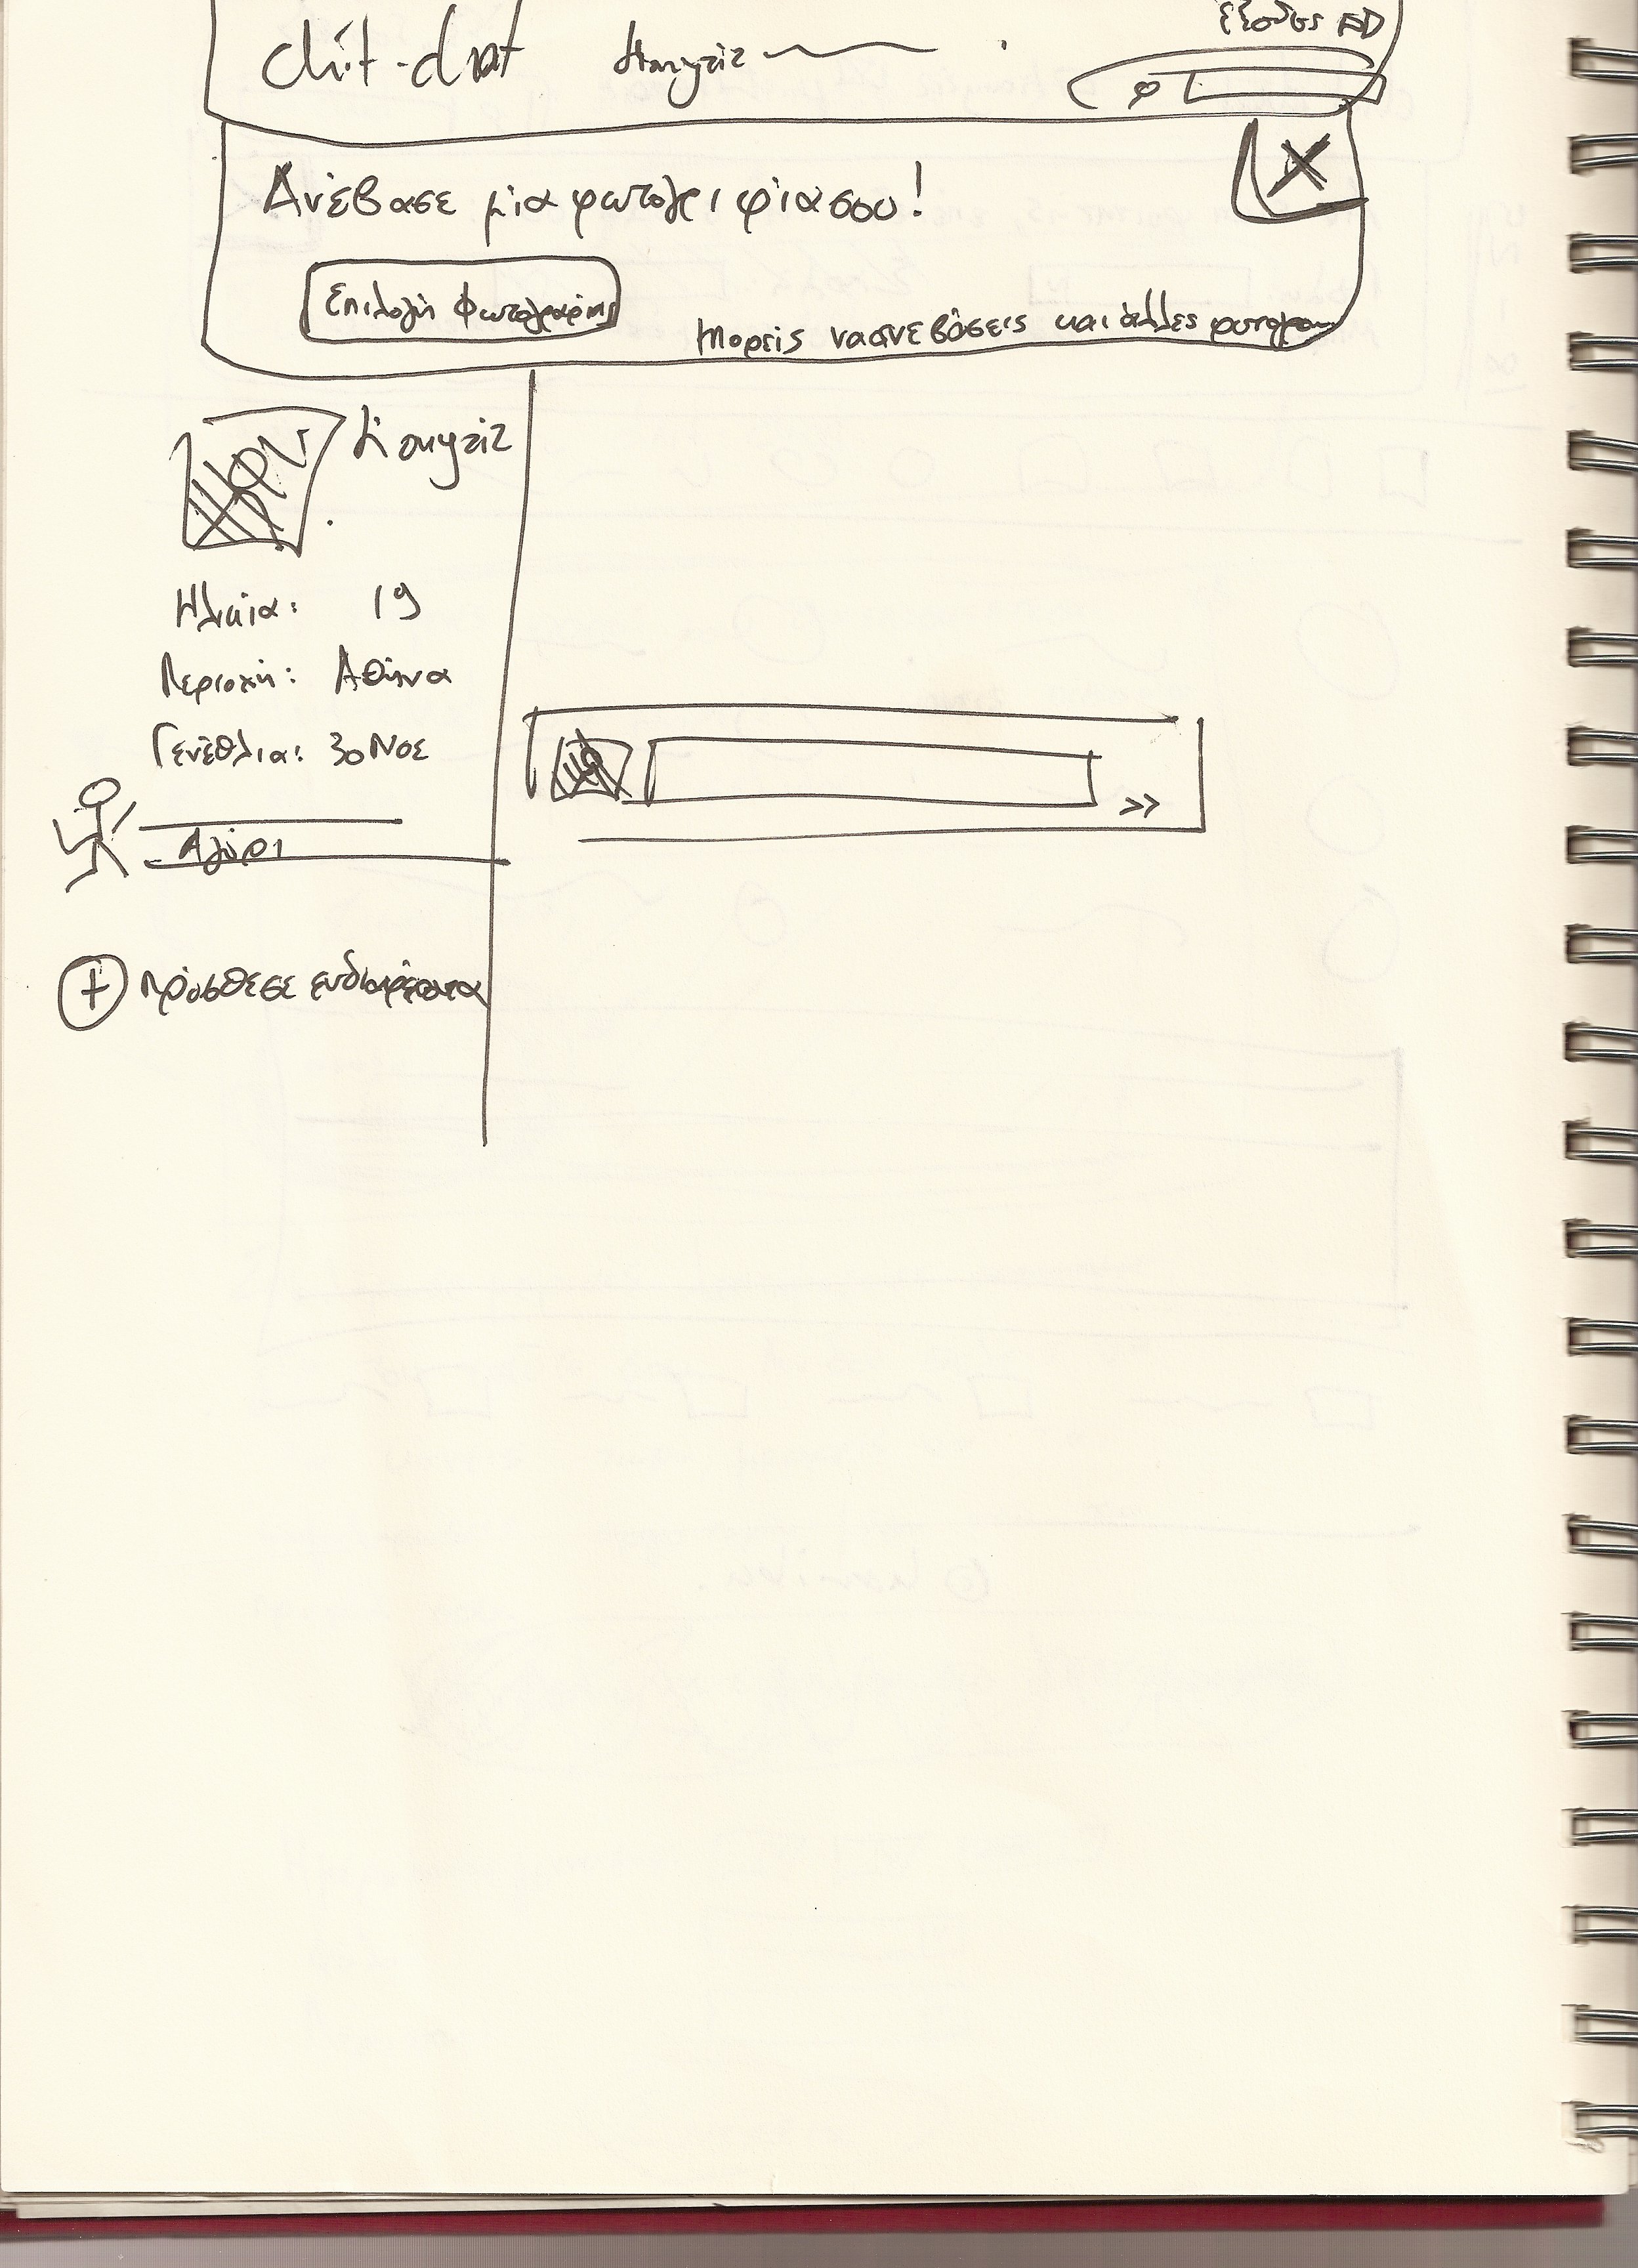 chit-chat
Έξοδος
Ανέβασε μία φωτογρ ι φ ία σου!
Επιλογή Φωτογραφίας
Μπορείς να ανεβάσεις και άλλες
Ηλικία: 19
Περιοχή: Αθήνα
Γενέθλια: 30 Νοε
Αγόρι
>>
+ Πρόσθεσε ενδιαφέροντα